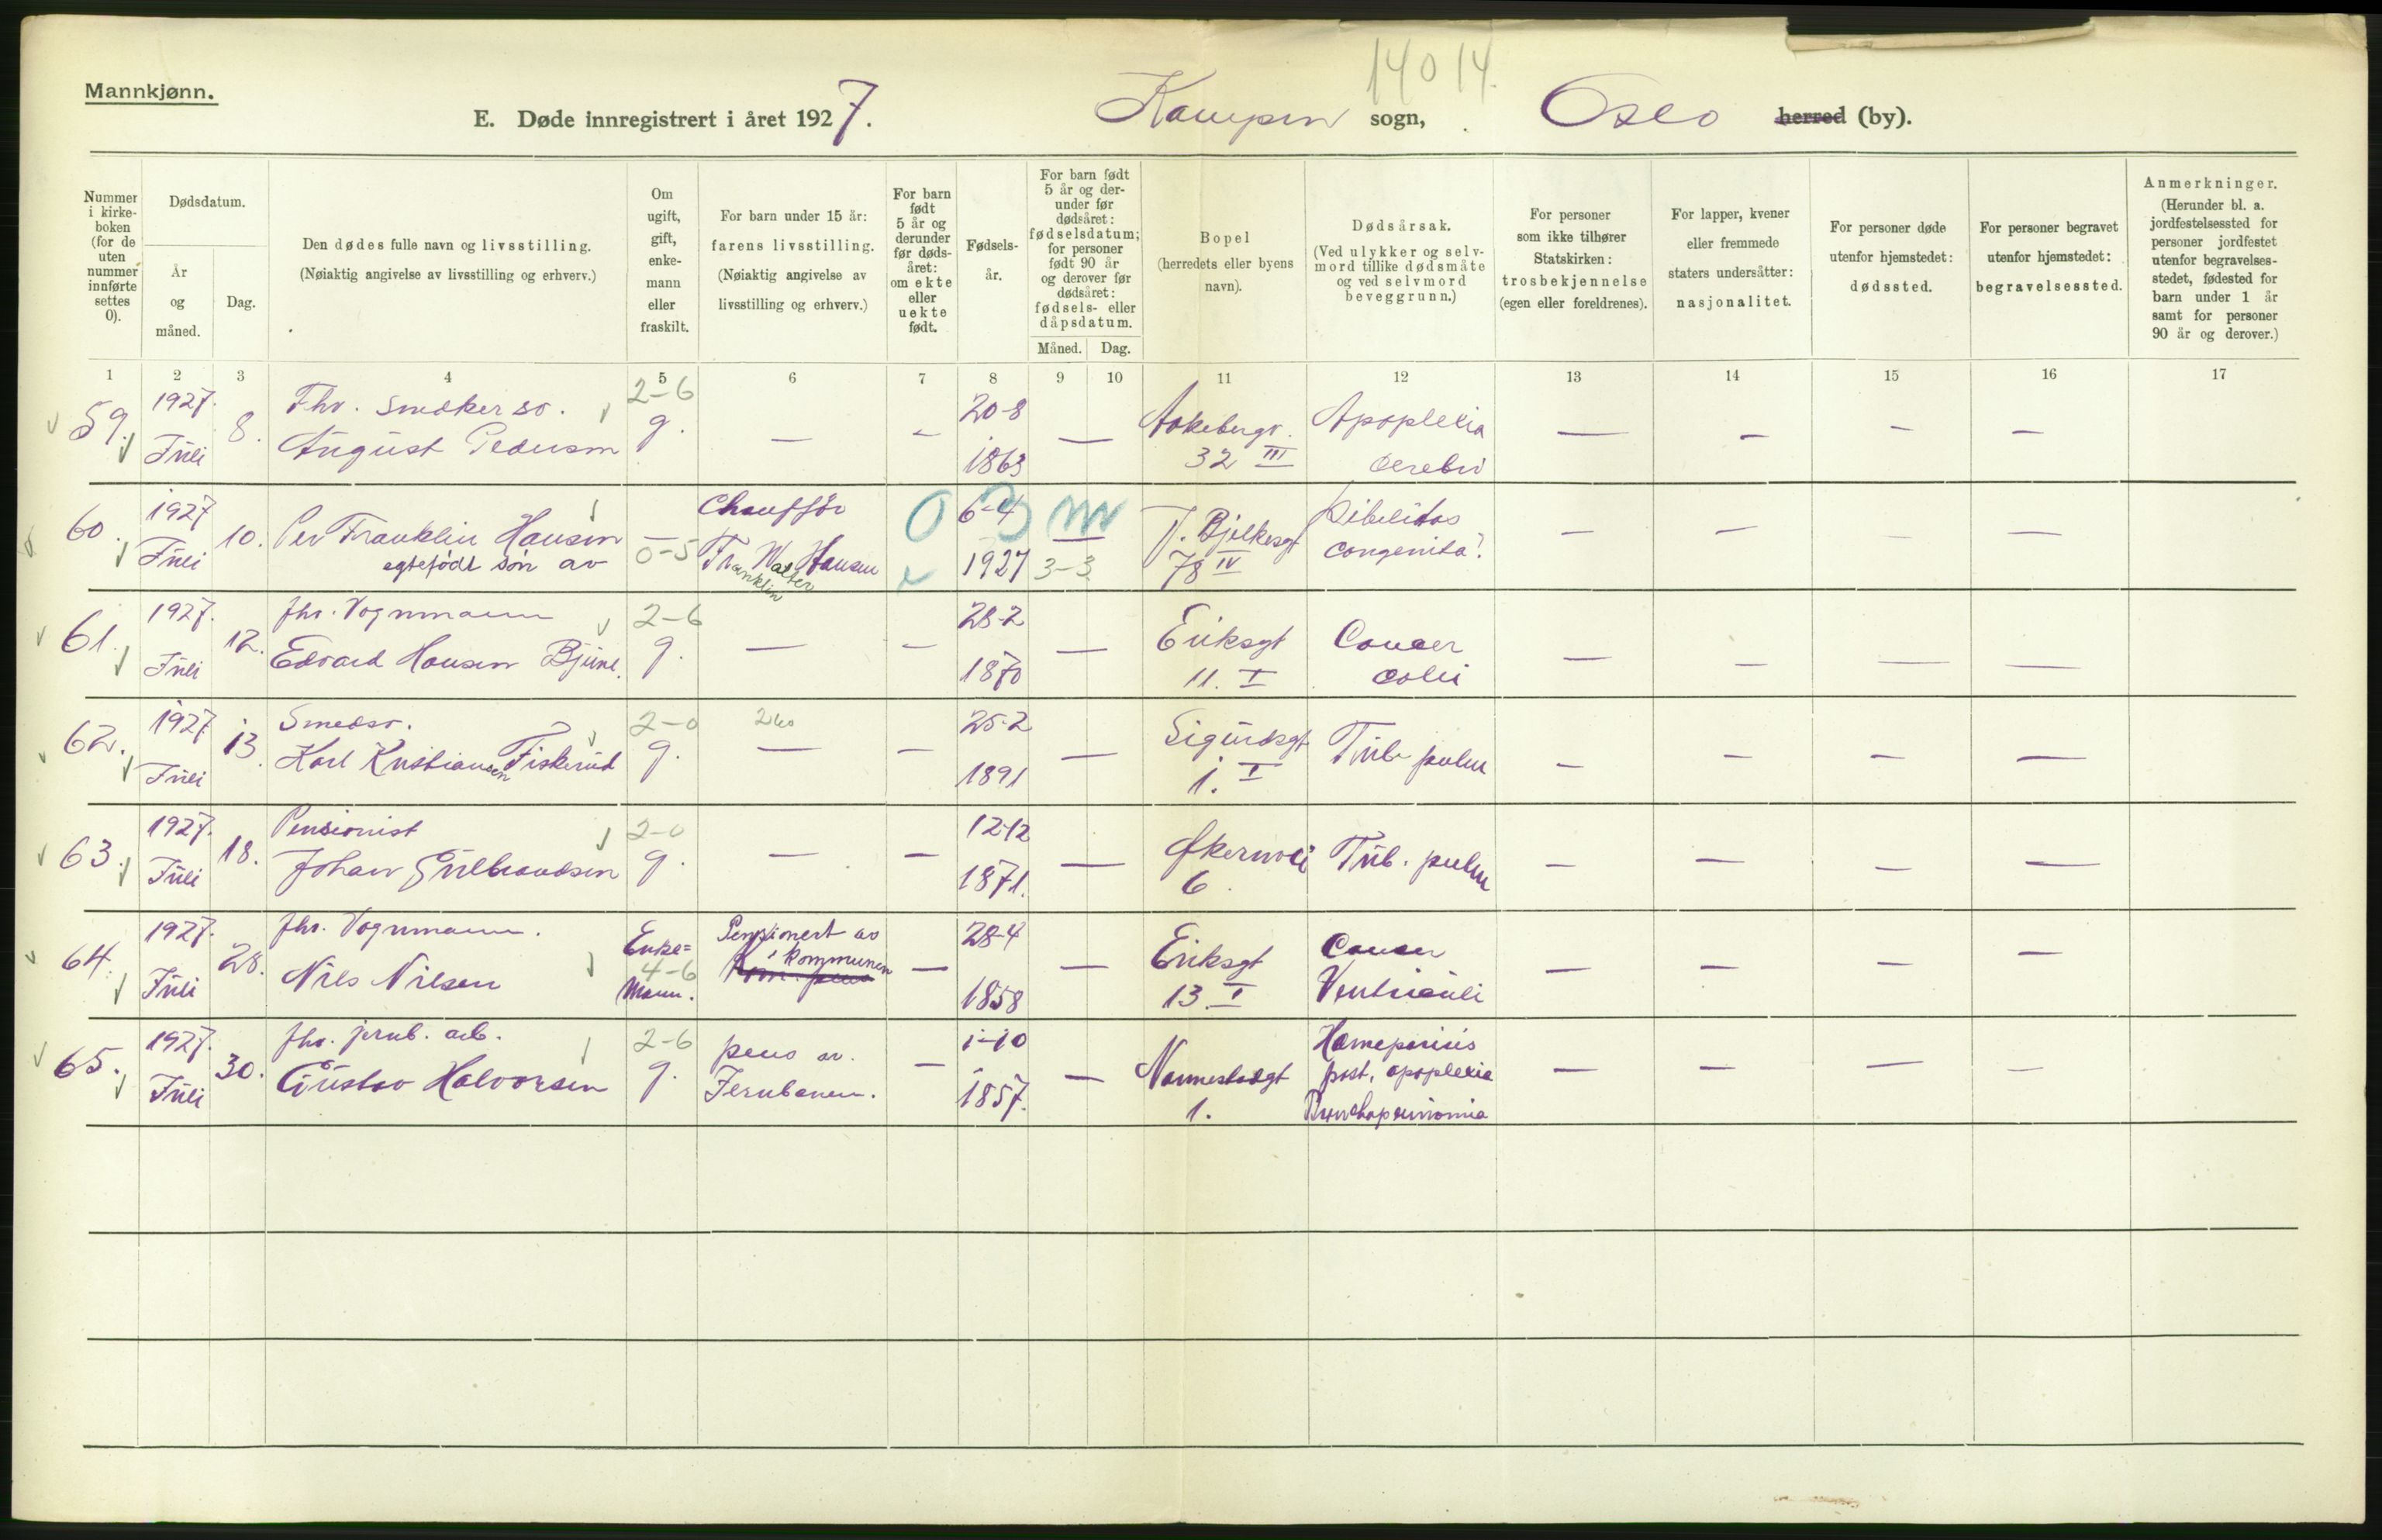 14014.
Mannkjønn.
E. Døde innregistrert i året 1927. Kampen sogn, Oslo herred (by).
Nummer i kirkeboken (for de uten nummer innførte settes 0).
Dødsdatum.
År og måned.
Dag.
Den dødes fulle navn og livsstilling.
(Nøiaktig angivelse av livsstilling og erhverv.)
Om ugift, gift, enkemann eller fraskilt.
For barn under 15 år: farens livsstilling.
(Nøiaktig angivelse av livsstilling og erhverv.)
For barn født 5 år og derunder før dødsåret: om ekte eller uekte født.
Fødselsår.
For barn født 5 år og derunder før dødsåret: fødselsdatum; for personer født 90 år og derover før dødsåret: fødsels- eller dåpsdatum.
Måned. Dag.
Bopel
(herredets eller byens navn).
Dødsårsak.
(Ved ulykker og selvmord tillike dødsmåte og ved selvmord beveggrunn.)
For personer som ikke tilhører Statskirken: trosbekjennelse (egen eller foreldrenes).
For lapper, kvener eller fremmede staters undersåtter: nasjonalitet.
For personer døde utenfor hjemstedet: dødssted.
For personer begravet utenfor hjemstedet: begravelsessted.
Anmerkninger.
(Herunder bl. a. jordfestelsessted for personer jordfestet utenfor begravelsesstedet, fødested for barn under 1 år samt for personer 90 år og derover.)
1 2 3 4 5 6 7 8 9 10 11 12 13 14 15 16 17
59. 1927. Juli 8. Fhv.
August Pedersen
2-6
g. — — 20-8
1863 — Aakebergv.
32 III
Apoplexia
cerebri — — — —
60. 1927 Juli 10. Per Franklin Hansen
egtefødt søn av
— 0-5 Chauffør
Franklin Walter Hansen
6-4
1927 3-3 J. Bjelkesgt
78 IV
Debilitas
congenita? — — — —
61. 1927. Juli 12. fhv. Vognmann
Edvard Hansen Bjune.
2-6
g. — — 28-2
1870 — Eriksgt
11. I
Cancer
coli — — — —
62. 1927 Juli 13. Smedsv.
Karl Kristiansen Fiskerud
2-0
g. — — 25-2
1891 — Sigurdsgt
1. I
Tub. pulm — — — —
63. 1927. Juli 18. Pensionist
Johan Gulbrandsen
2-0
g. — — 12-12
1871. — Økernvei
6.
Tub. pulm — — — —
64. 1927. Juli 28. fhv. Vognmann.
Nils Nilsen
Enke=
4-6
Mann.
Pensjonert av
kommunen
— 28-4
1858 — Eriksgt
13. I
Cancer
Ventriculi — — — —
65. 1927. Juli 30. fhv. jernb. arb.
Gustav Halvorsen
2-6
g. pens av.
Jernbanen.
— 1-10
1857. — Nannestadgt
1.
post. apoplexia
Bronchopneumonia — — — —